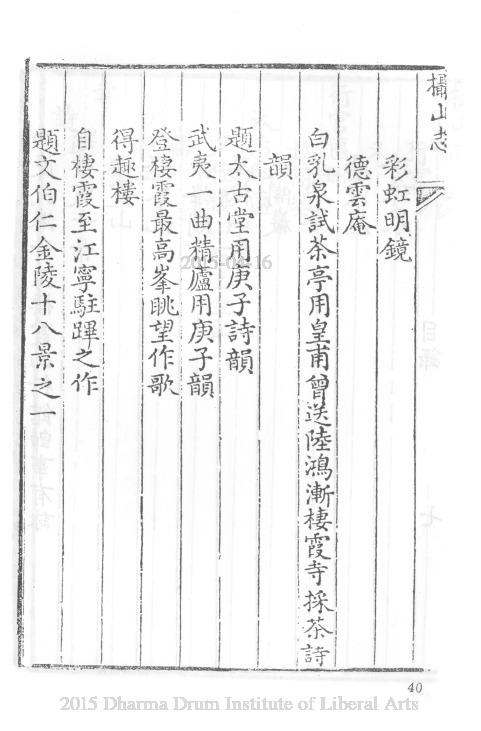 攝山志
彩虹明鏡
德雲庵
白乳泉試茶亭用皇甫曾送陸鴻漸棲霞寺採茶詩
韻
題太古堂用庚子詩韻
武夷一曲精廬用庚子韻
登棲霞最高峯眺望作歌
得趣樓
自棲霞至江寧駐蹕之作
題文伯仁金陵十八景之一
2015-04-16
40
2015 Dharma Drum Institute of Liberal Arts